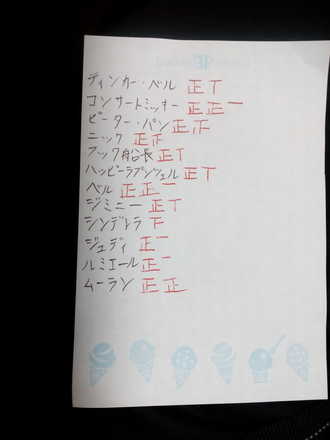 ティンカー・ベル 正丅
コンサートミッキー 正正一
ピーター・パン 正正
ニック 正正
フック船長 正丅
ハッピーラプンツェル 正丅
ベル 正正一
ジミニー 正丅
シンデレラ 下
ジュディ 正一
ルミエール 正一
ムーラン 正正